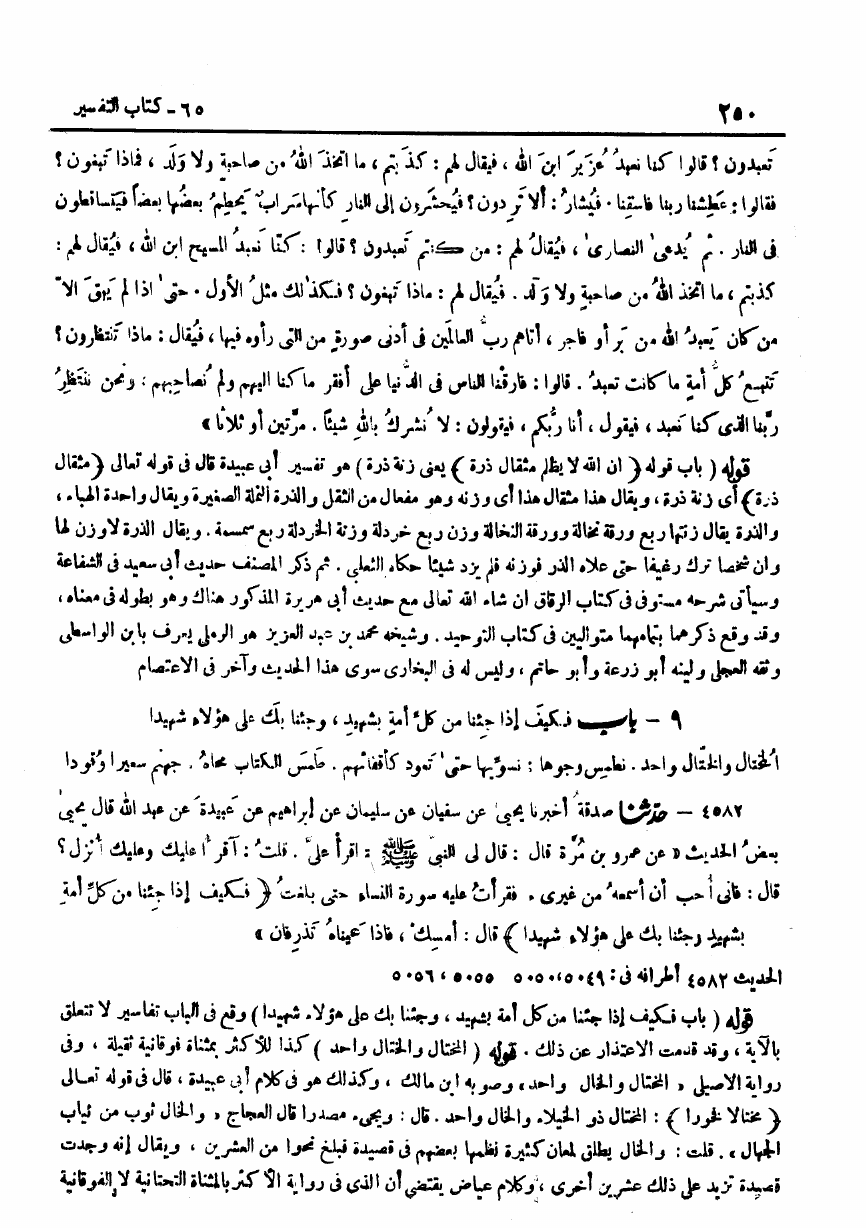 ٢٥٠
٦٥ - كتاب التفسير
تَعبدون ؟ قالوا كنا نعبدُ عُزَيرَ ابنَ الله ، فيقال لهم : كذَبتم ، ما اتخذَ اللهُ من صاحبةٍ ولا وَلَد ، فماذا تَبغون ؟
فقالوا : عَطِشنا ربنا فاسقِنا . فيُشارُ : ألا تَرِدون ؟ فيُحشَرون إلى النارِ كأنها سَرابٌ يَحطِمُ بعضُها بعضاً فيَتساقطون
فى النار . ثم يُدعىٰ النصارىٰ ، فيقالُ لهم : من كنتم تَعبدون ؟ قالوا : كنّا نَعبدُ المسيح ابن الله ، فيُقال لهم :
كذبتم ، ما اتخذ اللهُ من صاحبةٍ ولا وَلَد . فيُقال لهم : ماذا تَبغون ؟ فكذٰلك مثلُ الأول . حتىٰ اذا لم يَبقَ الاّ
من كان يَعبدُ الله من بَر أو فاجر ، أتاهم ربُّ العالمَين فى أدنى صورةٍ من التى رأوه فيها ، فيُقال : ماذا تَنتظرون ؟
تَتبعُ كلُّ أمةٍ ما كانت تعبدُ . قالوا : فارقْنا الناس فى الدُّنيا على أفقر ما كنا اليهم ولم نُصاحِبهم ، ونحن ننتظِرُ
ربَّنا الذى كنا نَعبد ، فيقول ، أنا ربُّكم ، فيقولون : لا نُشركُ بالله شيئاً . مرَّتين أو ثلاثا »
قوله ( باب قوله ﴿ ان الله لا يظلم مثقال ذرة ﴾ يعنى زنة ذرة ) هو تفسير أبى عبيدة قال فى قوله تعالى ﴿ مثقال
ذرة ﴾ أى زنة ذرة ، ويقال هذا مثقال هذا أى وزنه وهو مفعال من الثقل والذرة النملة الصغيرة ويقال واحدة الهباء ،
والذرة يقال زنتها ربع ورقة نخالة وورقة النخالة وزن ربع خردلة وزنة الخردلة ربع سمسمة . ويقال الذرة لا وزن لها
وان شخصا ترك رغيفا حتى علاه الذر فوزنه فلم يزد شيئا حكاه الثعلبى . ثم ذكر المصنف حديث أبى سعيد فى الشفاعة
وسيأتى شرحه مستوفى فى كتاب الرقاق ان شاء الله تعالى مع حديث أبى هريرة المذكور هناك وهو بطوله فى معناه ،
وقد وقع ذكرهما بتمامهما متواليين فى كتاب التوحيد . وشيخه محمد بن عبد العزيز هو الرملى يعرف بابن الواسطى
وثقه العجلى ولينه أبو زرعة وأبو حاتم ، وليس له فى البخارى سوى هذا الحديث وآخر فى الاعتصام
٩ - باب فكيفَ إذا جِئنا من كلِّ أمةٍ بشهيدٍ ، وجئنا بكَ على هؤلاءِ شهيدا
المُختال والختّال واحد . نطمِس وجوها : نسوِّيها حتىٰ تَعود كأقفائهم . طَمسَ الكتاب محاهُ . جهنم سعيرا وُقودا
٤٥٨٢ - حدثنا صدقةُ أخبرنا يحيىٰ عن سفيان عن سليمان عن إبراهيم عن عَبيدةَ عن عبد الله قال يحيىٰ
بعضُ الحديث « عن عمرو بن مُرَّة قال : قال لى النبى ﷺ : اقرأ علىَّ . قلتُ : آقرأ عليك وعليك أُنزل ؟
قال : فانى أُحب أن أسمعهُ من غيرى . فقرأتُ عليه سورة النساء حتى بلغتُ ﴿ فكيف إذا جِئنا من كلِّ أمةٍ
بشهيدٍ وجئنا بك على هؤلاءِ شهيدا ﴾ قال : أمسِكْ ، فاذا عَيناهُ تَذرِفان »
الحديث ٤٥٨٢ أطرافه فى : ٥٠٤٩، ٥٠٥٠، ٥٠٥٥ ، ٥٠٥٦
قوله ( باب فكيف إذا جئنا من كل أمة بشهيد ، وجئنا بك على هؤلاء شهيدا ) وقع فى الباب تفاسير لا تتعلق
بالآية ، وقد قدمت الاعتذار عن ذلك . قوله ( المختال والختال واحد ) كذا للأكثر بمثناة فوقانية ثقيلة ، وفى
رواية الاصيلى « المختال والخال واحد » وصوبه ابن مالك ، وكذلك هو فى كلام أبى عبيدة ، قال فى قوله تعالى
﴿ مختالا فخورا ﴾ : المختال ذو الخيلاء والخال واحد . قال : ويجىء مصدرا قال العجاج « والخال ثوب من ثياب
الجهال » . قلت : والخال يطلق لمعان كثيرة نظمها بعضهم فى قصيدة فبلغ نحوا من العشرين ، ويقال إنه وجدت
قصيدة تزيد على ذلك عشرين أخرى ، وكلام عياض يقتضى أن الذى فى رواية الأكثر بالمثناة التحتانية لا الفوقانية